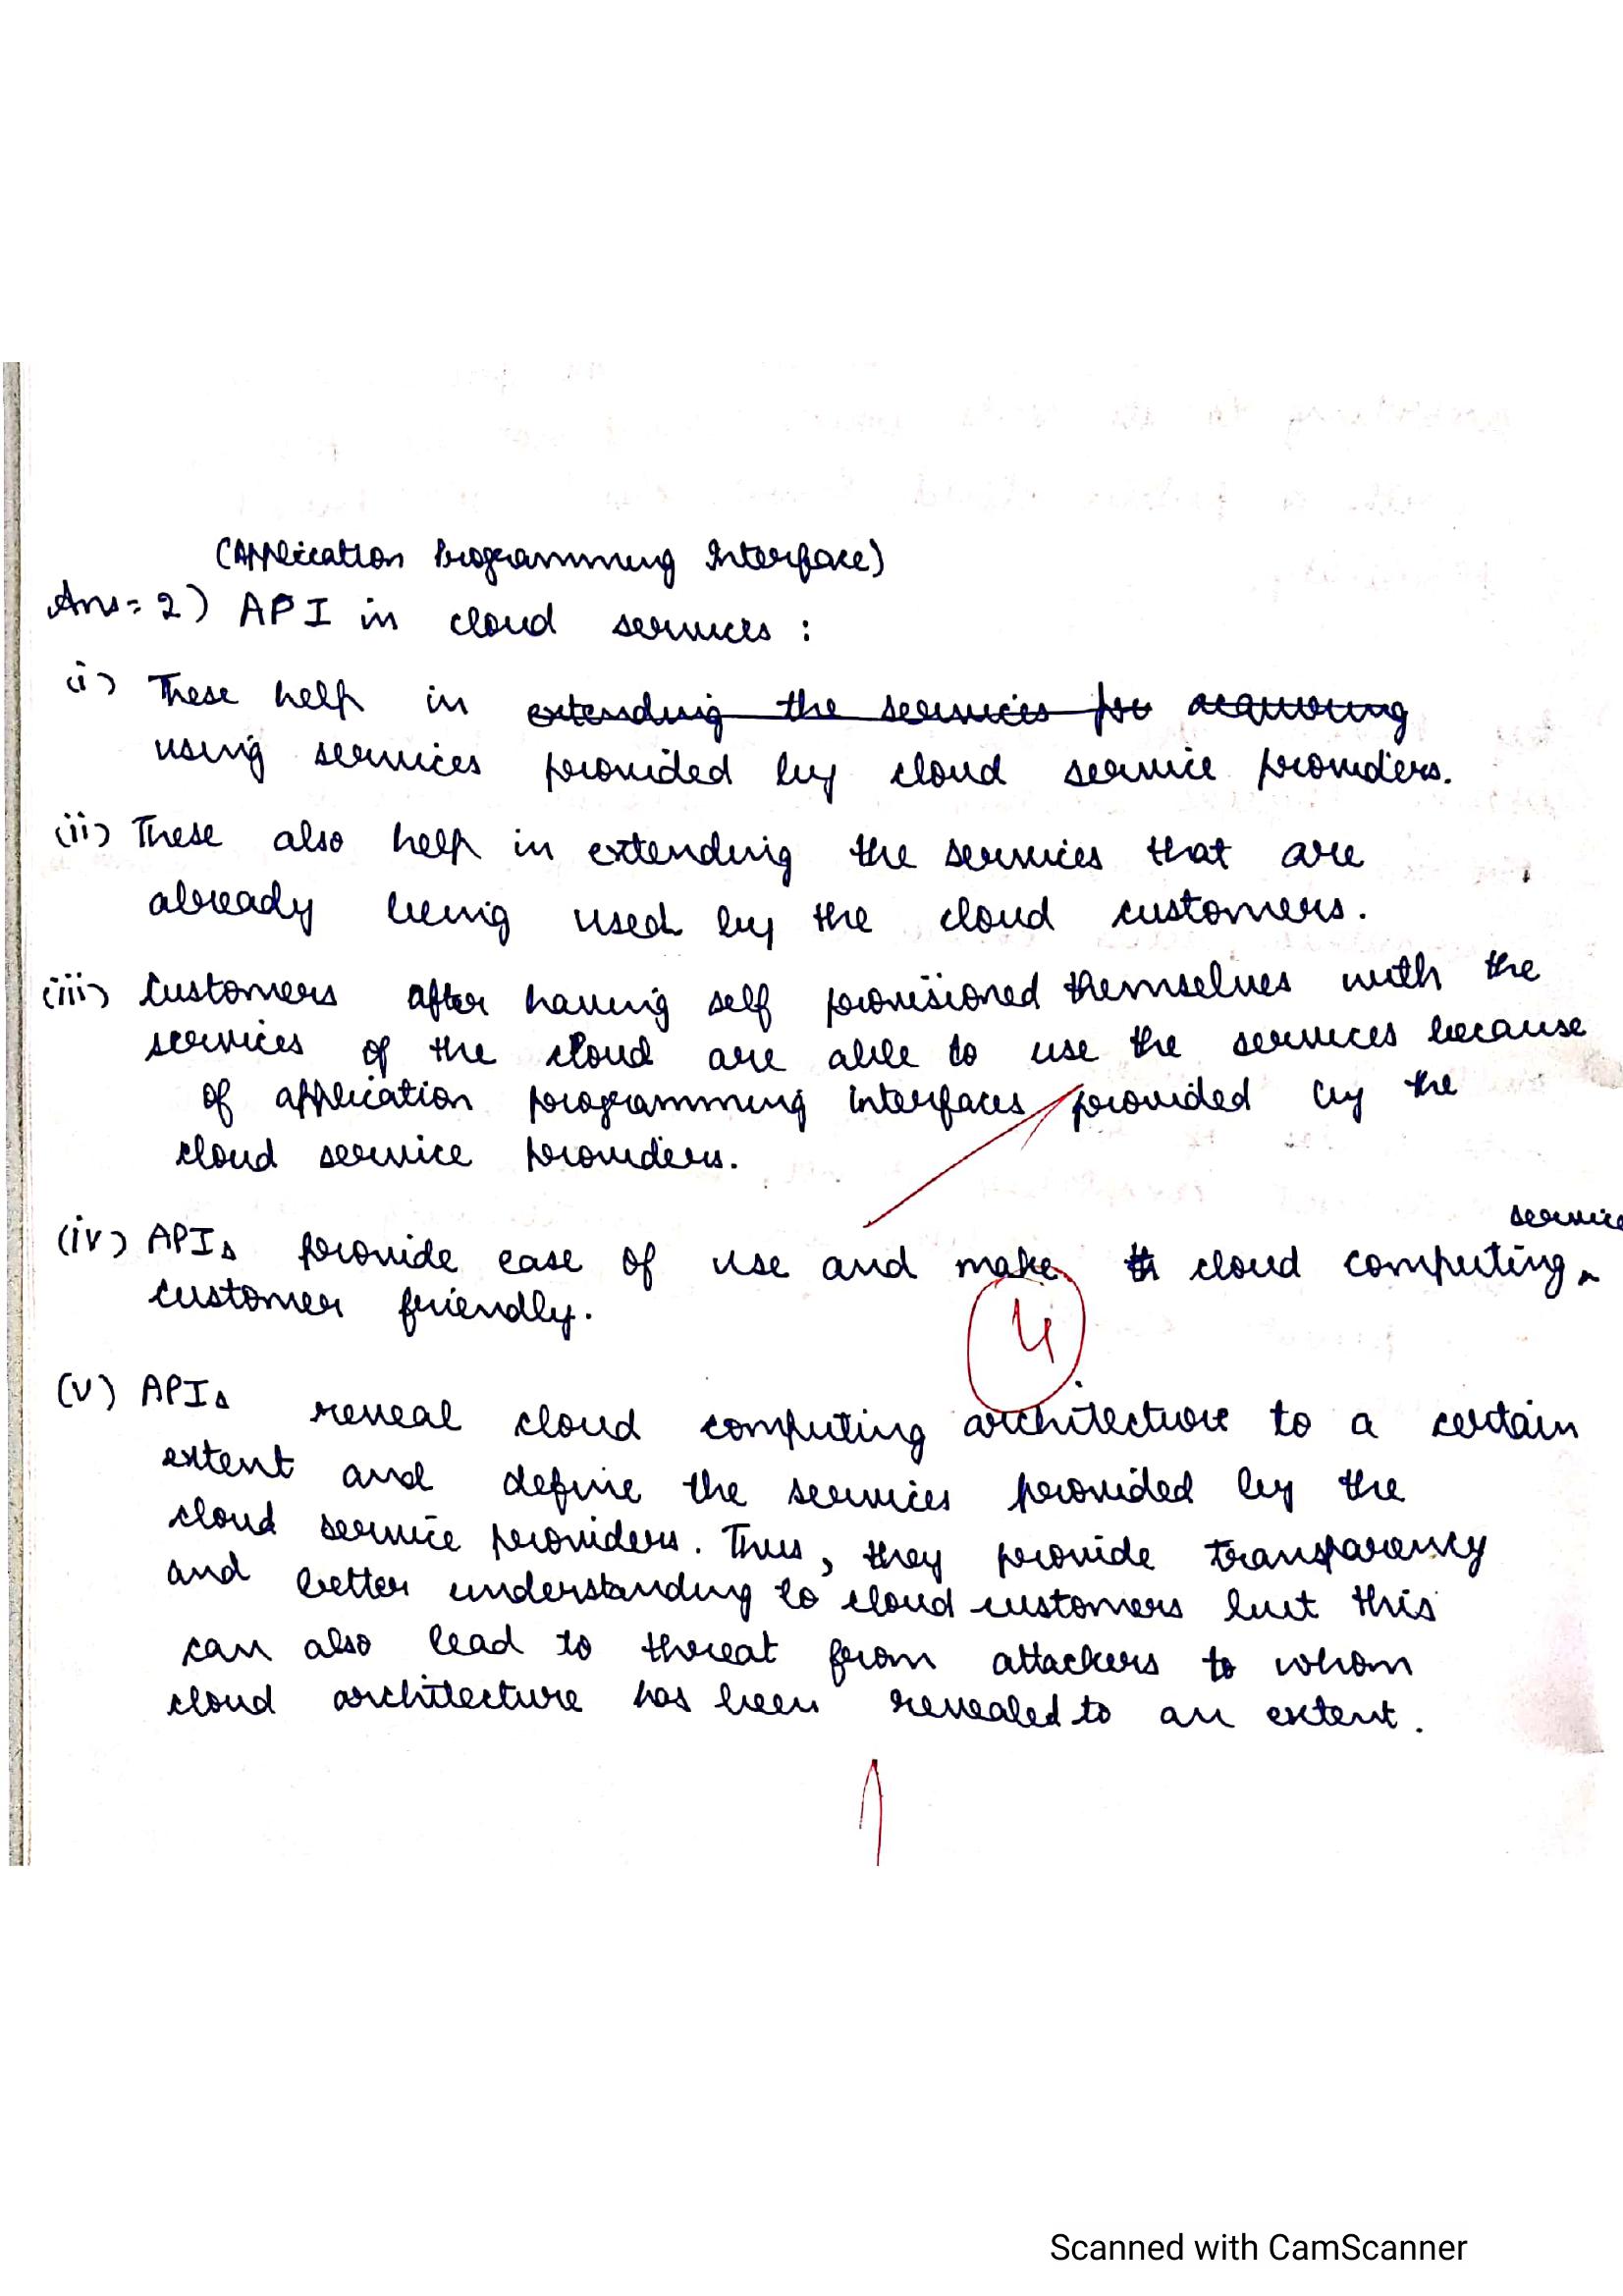 (Application Programming Interface)
Ans=2) API in cloud services :
(i) These help in extending the services for acquiring
using services provided by cloud service providers.
(ii) These also help in extending the services that are
already being used by the cloud customers.
(iii) Customers after having self provisioned themselves with the
services of the cloud are able to use the services because
of application programming interfaces provided by the
cloud service providers.
service
(iv) APIs provide ease of use and make th cloud computing
customer friendly.
4
(v) APIs reveal cloud computing architecture to a certain
extent and define the services provided by the
cloud service providers. Thus, they provide transparency
and better understanding to cloud customers but this
can also lead to threat from attackers to whom
cloud architecture has been revealed to an extent.
Scanned with CamScanner